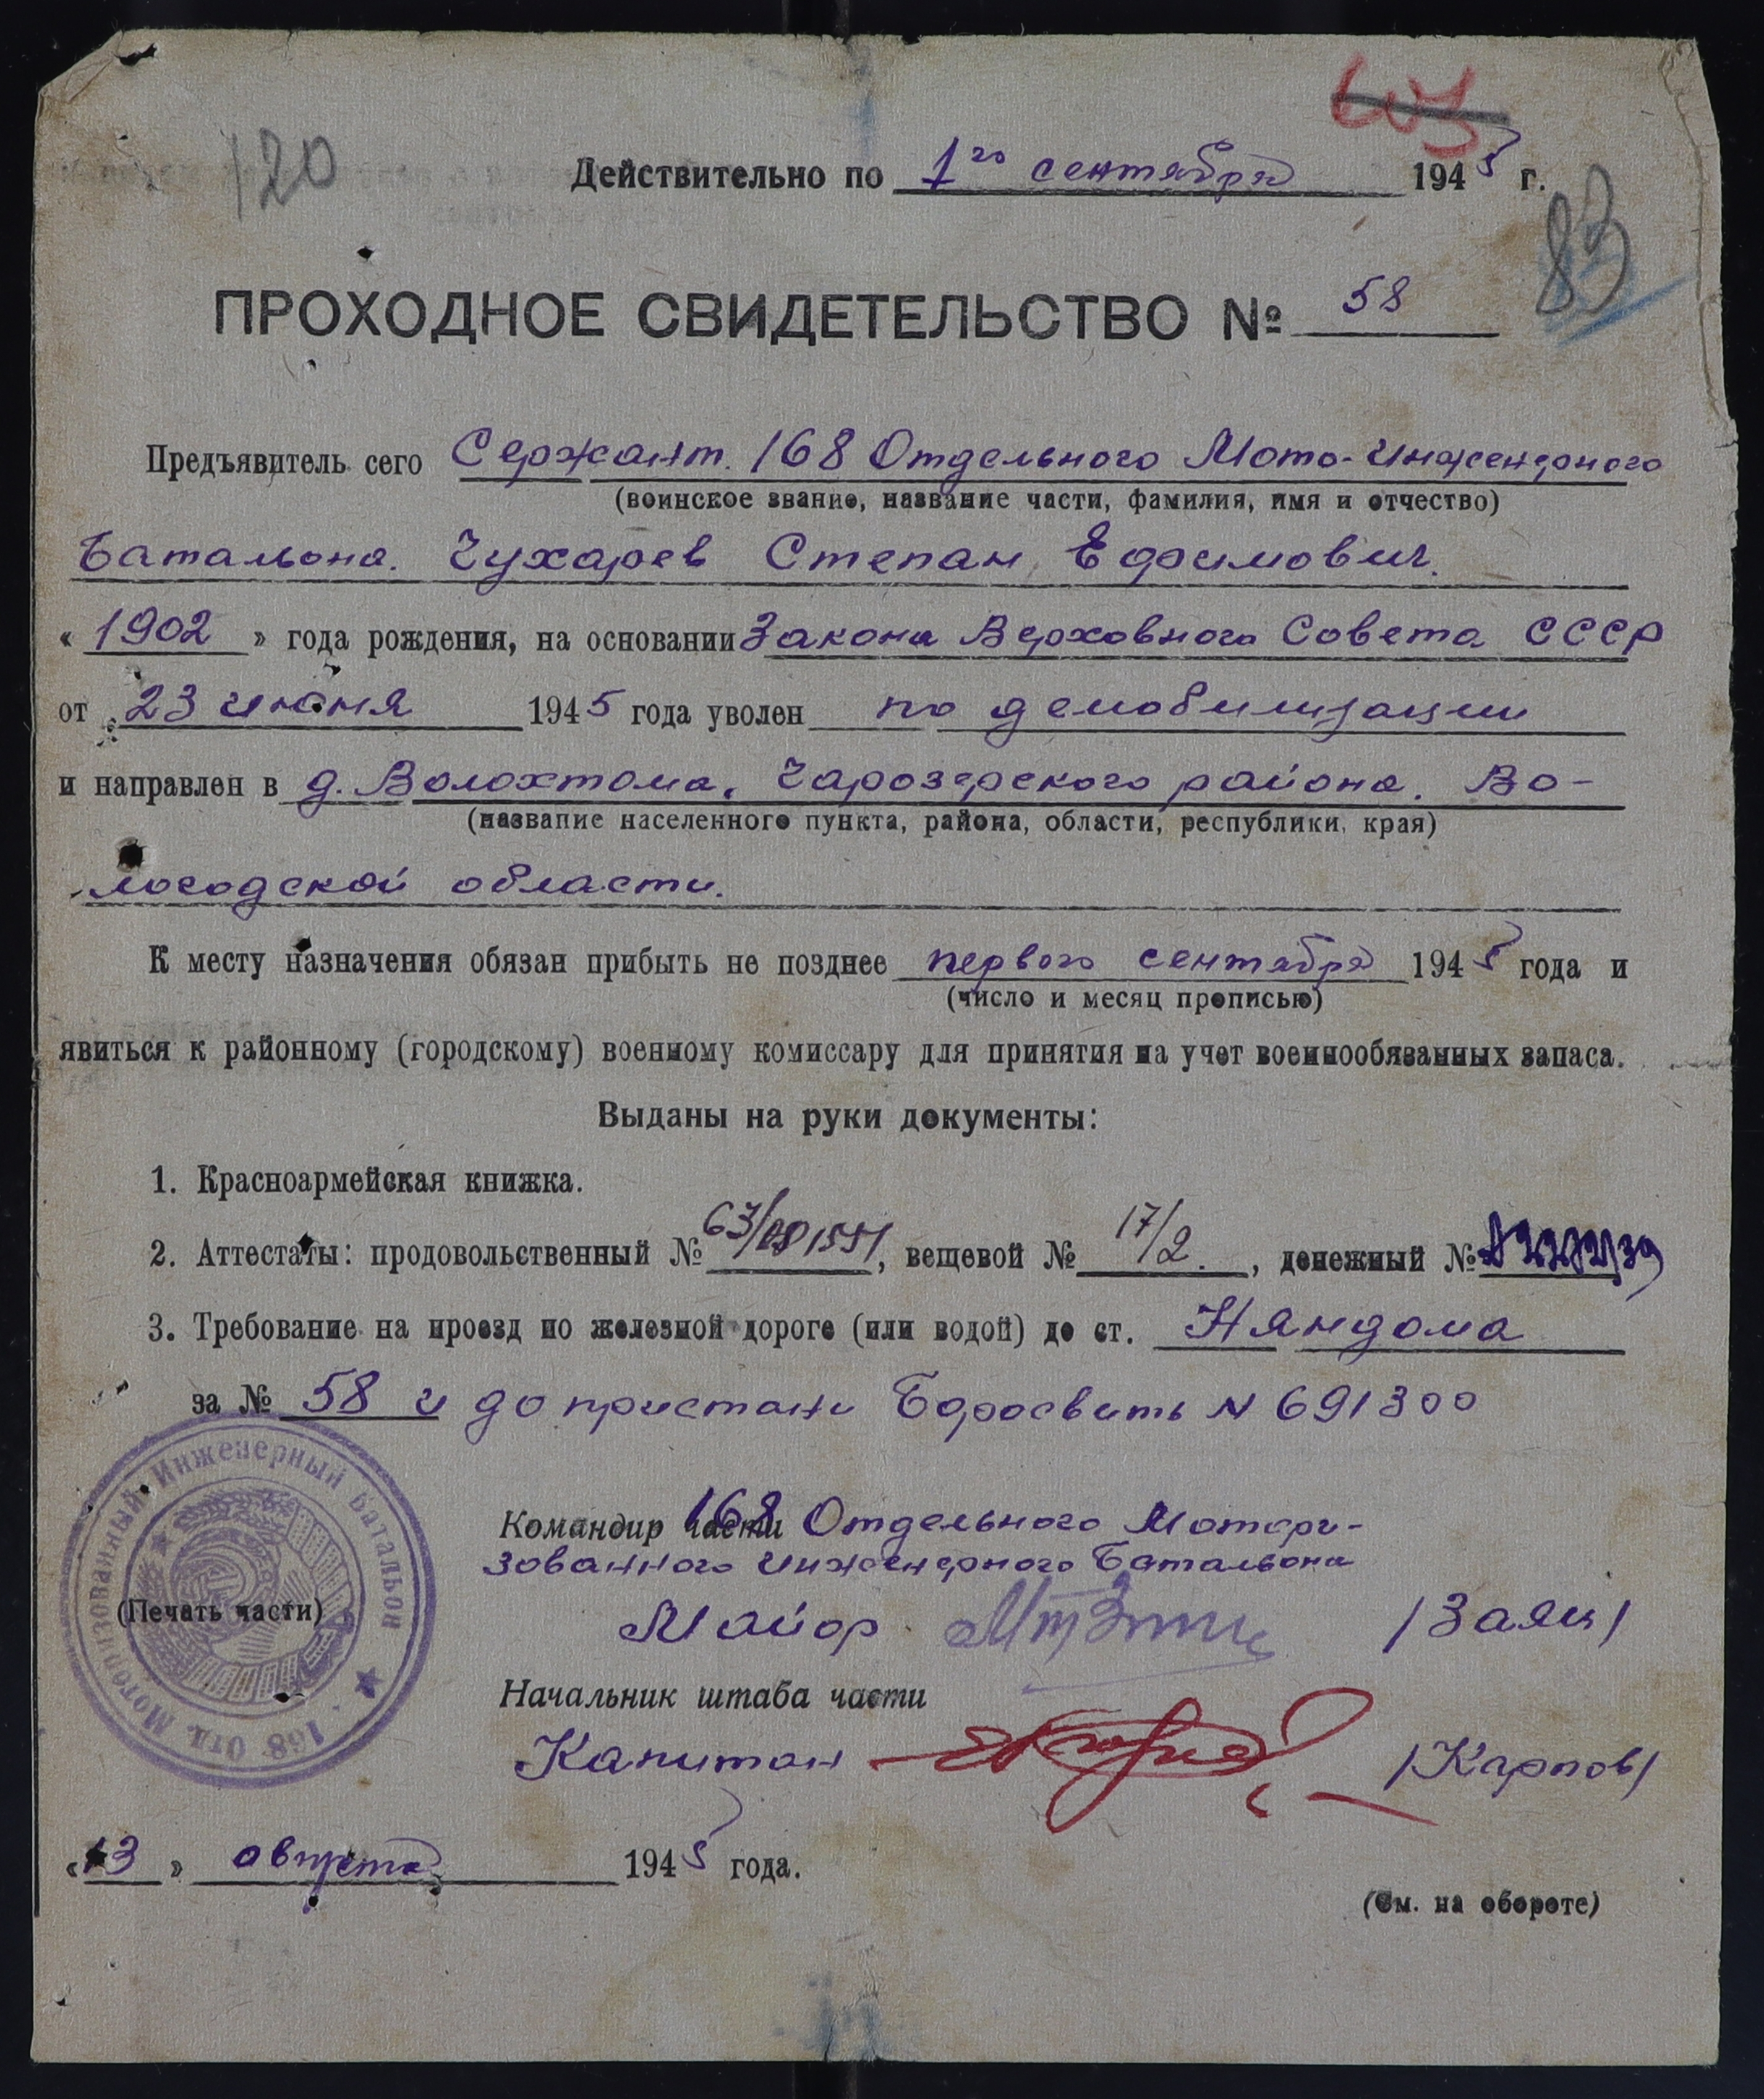 603
120
Действительно по 1го сентября 1945 г.
83
ПРОХОДНОЕ СВИДЕТЕЛЬСТВО № 58
Предъявитель сего Сержант. 168 Отдельного Мото-Инженерного
(воинское звание, название части, фамилия, имя и отчество)
Батальона. Чухарев Степан Ефимович.
« 1902 » года рождения, на основании Закона Верховного Совета СССР
от 23 июня 1945 года уволен по демобилизации
и направлен в д. Волохтома, Чарозерского района. Во-
(название населенного пункта, района, области, республики, края)
логодской области.
К месту назначения обязан прибыть не позднее первого сентября 1945 года и
(число и месяц прописью)
явиться к районному (городскому) военному комиссару для принятия на учет военнообязанных запаса.
Выданы на руки документы:
1. Красноармейская книжка.
2. Аттестаты: продовольственный № 63/ , вещевой № 17/2. , денежный №
3. Требование на проезд по железной дороге (или водой) до ст. Няндома
за № 58 и до пристани N 691300
168 Отд. Моторизованный Инженерный Батальон
(Печать части)
Командир части 168 Отдельного Мотори-
зованного Инженерного Батальона
Майор /Заяц/
Начальник штаба части
Капитан /Карпов/
«13» августа 1945 года.
(См. на обороте)